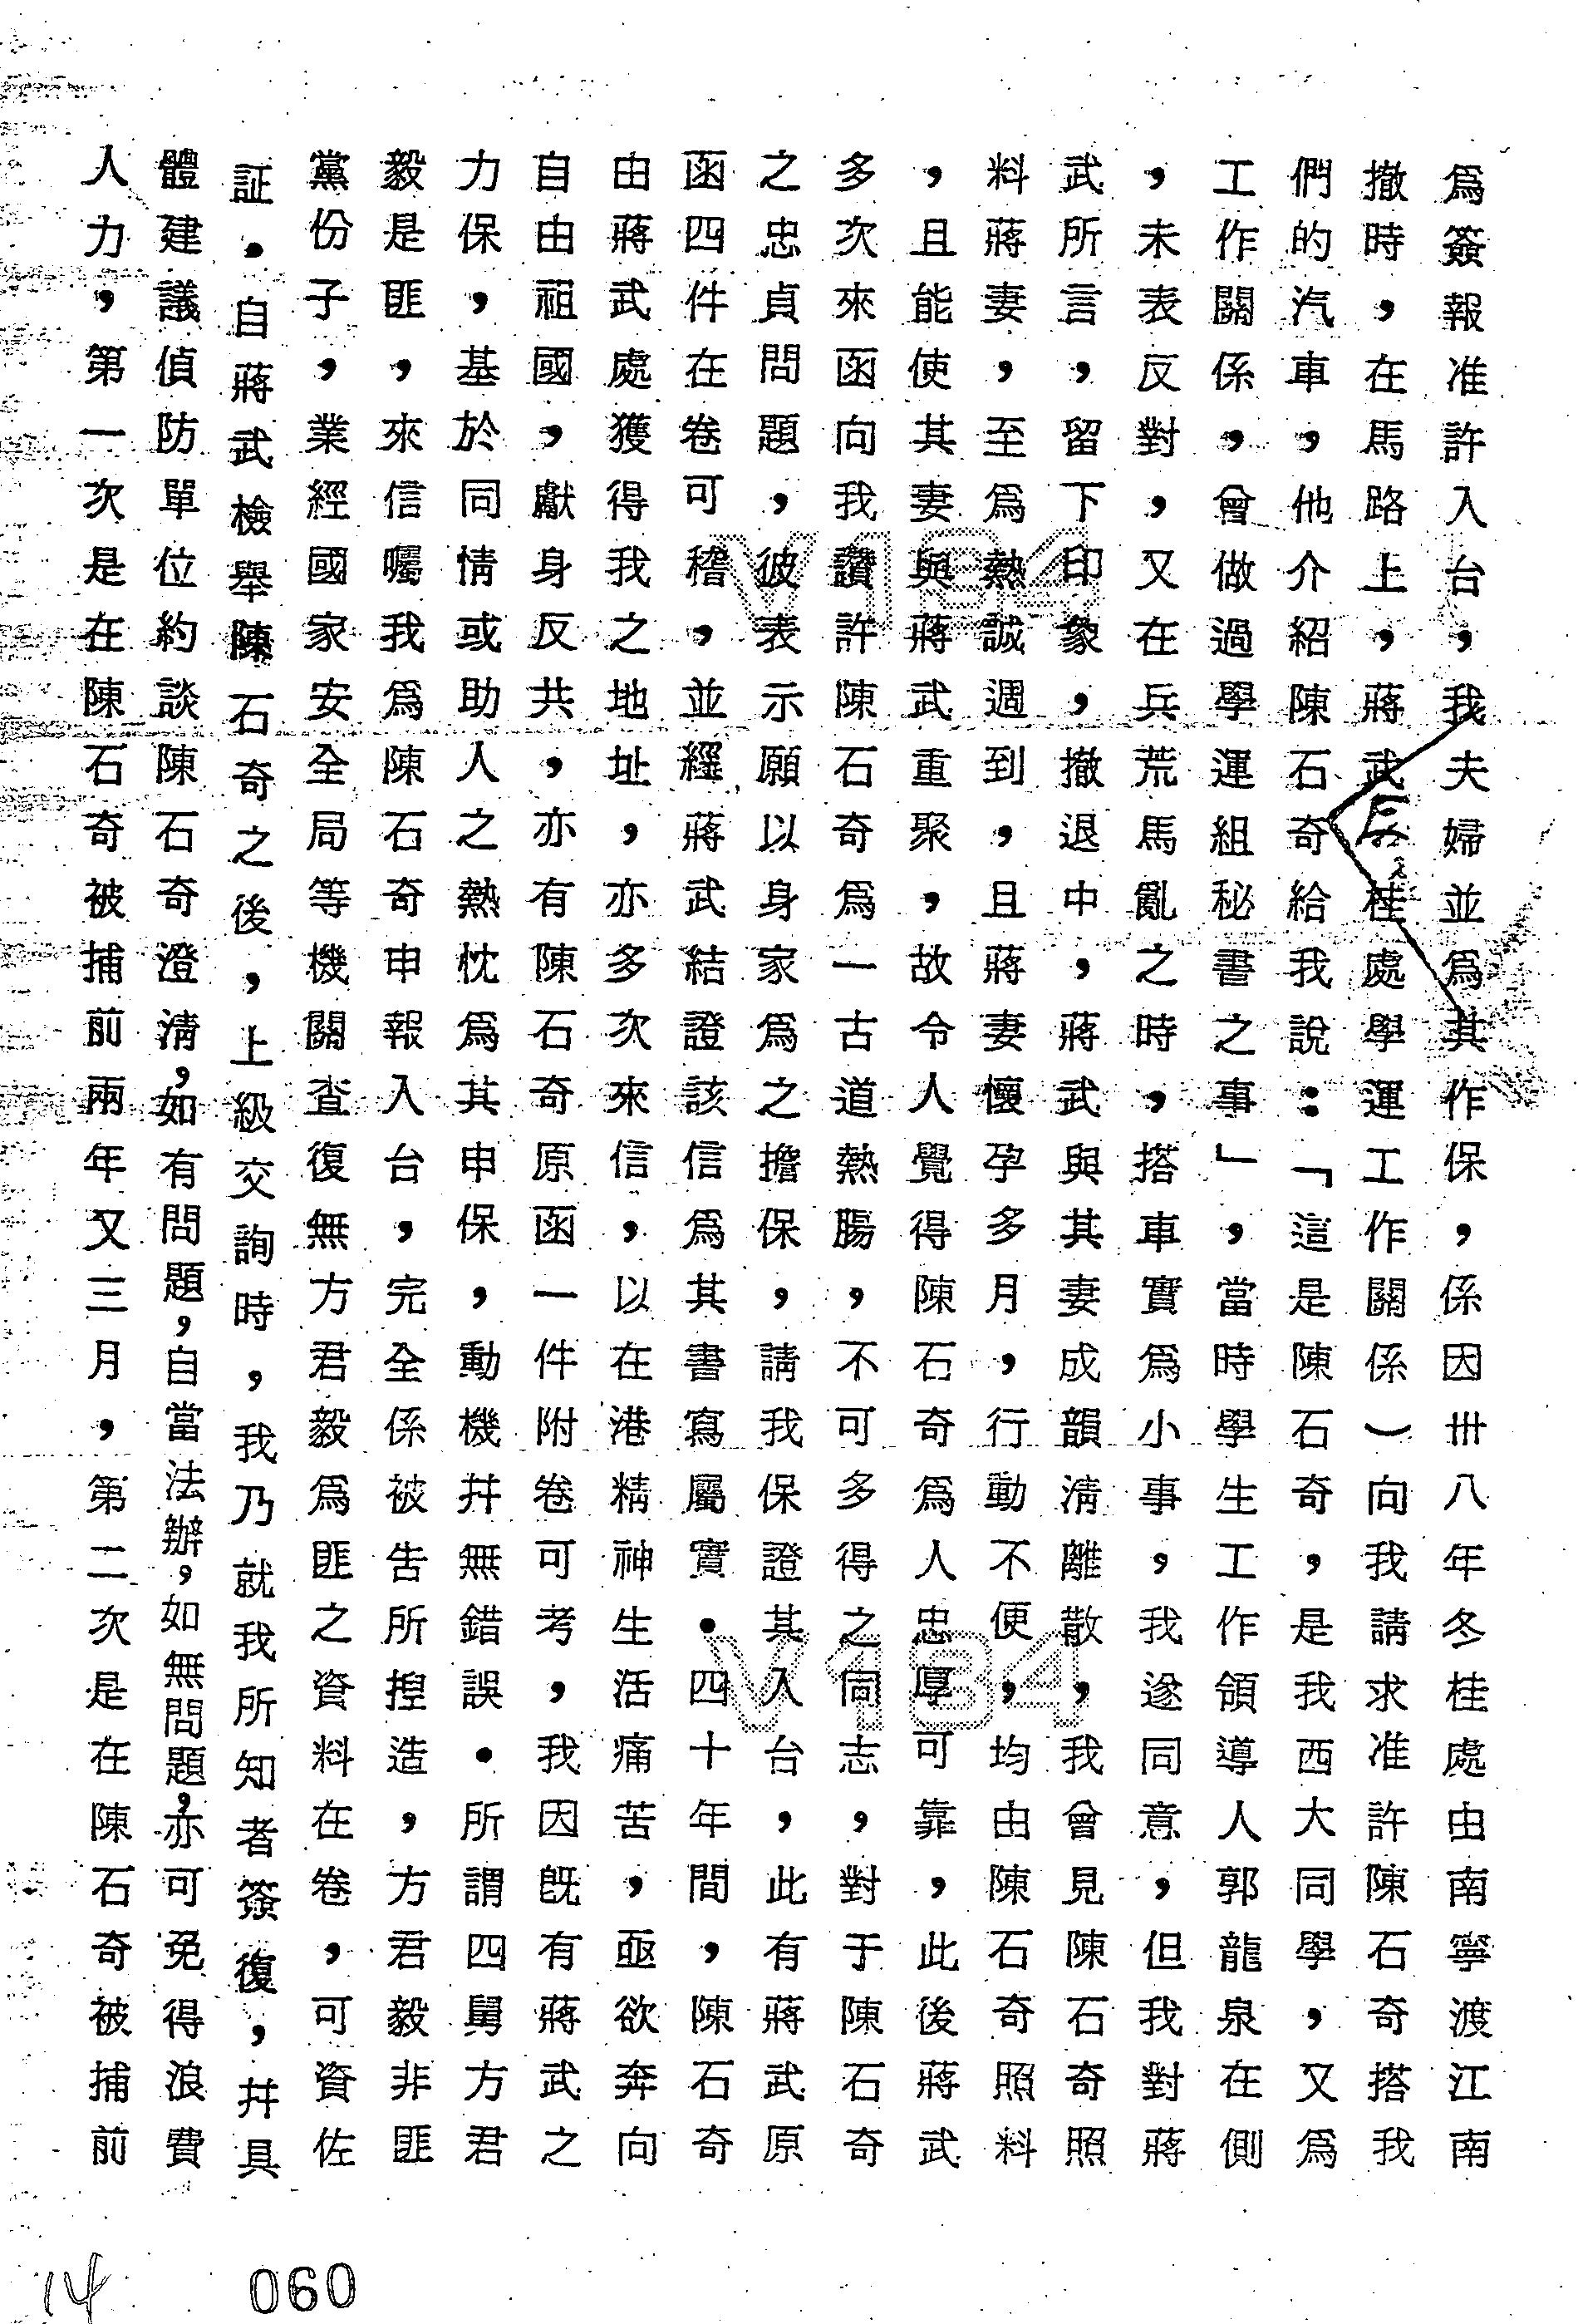 爲簽報准許入台，我夫婦並爲其作保，係因卅八年冬桂處由南寧渡江南
撤時，在馬路上，蔣武（桂處學運工作關係）向我請求准許陳石奇搭我
們的汽車，他介紹陳石奇給我說：「這是陳石奇，是我西大同學，又爲
工作關係，曾做過學運組秘書之事」，當時學生工作領導人郭龍泉在側
，未表反對，又在兵荒馬亂之時，搭車實爲小事，我遂同意，但我對蔣
武所言，留下印象，撤退中，蔣武與其妻成韻淸離散，我曾見陳石奇照
料蔣妻，至爲熱誠週到，且蔣妻懷孕多月，行動不便，均由陳石奇照料
，且能使其妻與蔣武重聚，故令人覺得陳石奇爲人忠厚可靠，此後蔣武
多次來函向我讚許陳石奇爲一古道熱腸，不可多得之同志，對于陳石奇
之忠貞問題，彼表示願以身家爲之擔保，請我保證其入台，此有蔣武原
函四件在卷可稽，並經蔣武結證該信爲其書寫屬實．四十年間，陳石奇
由蔣武處獲得我之地址，亦多次來信，以在港精神生活痛苦，亟欲奔向
自由祖國，獻身反共，亦有陳石奇原函一件附卷可考，我因旣有蔣武之
力保，基於同情或助人之熱忱爲其申保，動機幷無錯誤．所謂四舅方君
毅是匪，來信囑我爲陳石奇申報入台，完全係被告所揑造，方君毅非匪
黨份子，業經國家安全局等機關査復無方君毅爲匪之資料在卷，可資佐
証．自蔣武檢舉陳石奇之後，上級交詢時，我乃就我所知者簽復，幷具
體建議偵防單位約談陳石奇澄淸，如有問題，自當法辦，如無問題，亦可免得浪費
人力，第一次是在陳石奇被捕前兩年又三月，第二次是在陳石奇被捕前
V184
V184
14
060